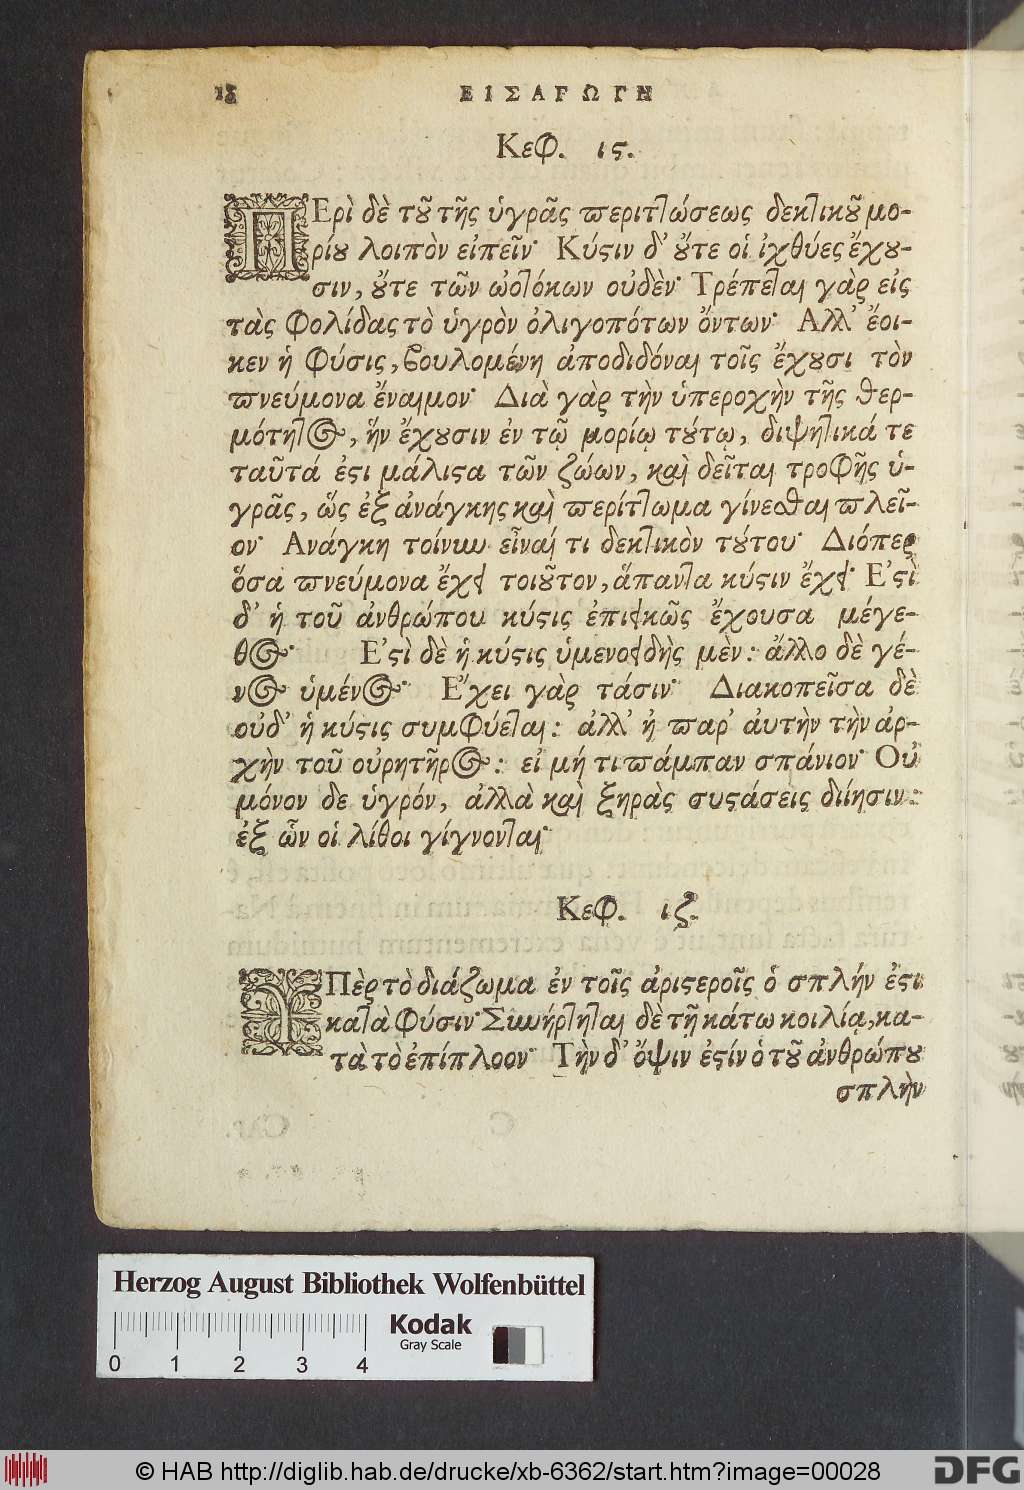 18 ΕΙΣΑΓΩΓΗ
Κεφ. ις.
ΠΕρὶ δὲ τȣ͂ τῆς ὑγρᾶς περιττώσεως δεκτικȣ͂ μο-
ρίȣ λοιπὸν εἰπεῖν· Κύσιν δ' ȣ̓́τε οἱ ἰχθύες ἔχȣ-
σιν, ȣ̓́τε τῶν ὠοτόκων οὐδὲν· Τρέπεται γὰρ εἰς
τὰς φολίδας τὸ ὑγρὸν ὀλιγοπότων ὄντων· Αλλ' ἔοι-
κεν ἡ φύσις, βουλομένη ἀποδιδόναι τοῖς ἔχȣσι τὸν
πνεύμονα ἔναιμον· Διὰ γὰρ τὴν ὑπεροχὴν τῆς θερ-
μότητος, ἥν ἔχȣσιν ἐν τῷ μορίῳ τȣ́τῳ, διψητικά τε
ταῦτά ἐϛι μάλιϛα τῶν ζώων, καὶ δεῖται τροφῆς ὑ-
γρᾶς, ὥς ἐξ ἀνάγκης καὶ περίττωμα γίνεσθαι πλεῖ-
ον· Ανάγκη τοίνυν εἶναί τι δεκτικὸν τȣ́του· Διόπερ
ὅσα πνεύμονα ἔχει τοιȣ͂τον, ἅπαντα κύσιν ἔχει· Ε'ϛὶ
δ' ἡ τοῦ ἀνθρώπου κύϛις ἐπιεικῶς ἔχουσα μέγε-
θος· Ε'ϛὶ δὲ ἡ κύϛις ὑμενοειδὴς μὲν: ἄλλο δὲ γέ-
νος ὑμένος· Ε῎χει γὰρ τάσιν· Διακοπεῖσα δὲ
οὐδ' ἡ κύϛις συμφύεται: ἀλλ' ἠ παρ' αὐτὴν τὴν ἀρ-
χὴν τοῦ οὐρητῆρος: εἰ μή τι πάμπαν σπάνιον· Οὐ
μόνον δε ὑγρόν, ἀλλὰ καὶ ξηρὰς συϛάσεις διίησιν:
ἐξ ὧν οἱ λίθοι γίγνονται·
Κεφ. ιζ.
ΥΠὲρ τὸ διάζωμα ἐν τοῖς ἀριϛεροῖς ὁ σπλήν ἐϛι
κατὰ φύσιν· Συνήρτηται δὲ τῇ κάτω κοιλίᾳ, κα-
τὰ τὸ ἐπίπλοον· Τὴν δ' ὄψιν ἐϛίν ὁ τȣ͂ ἀνθρώπȣ
σπλὴν
Herzog August Bibliothek Wolfenbüttel
Kodak
Gray Scale
0 1 2 3 4
© HAB http://diglib.hab.de/drucke/xb-6362/start.htm?image=00028
DFG